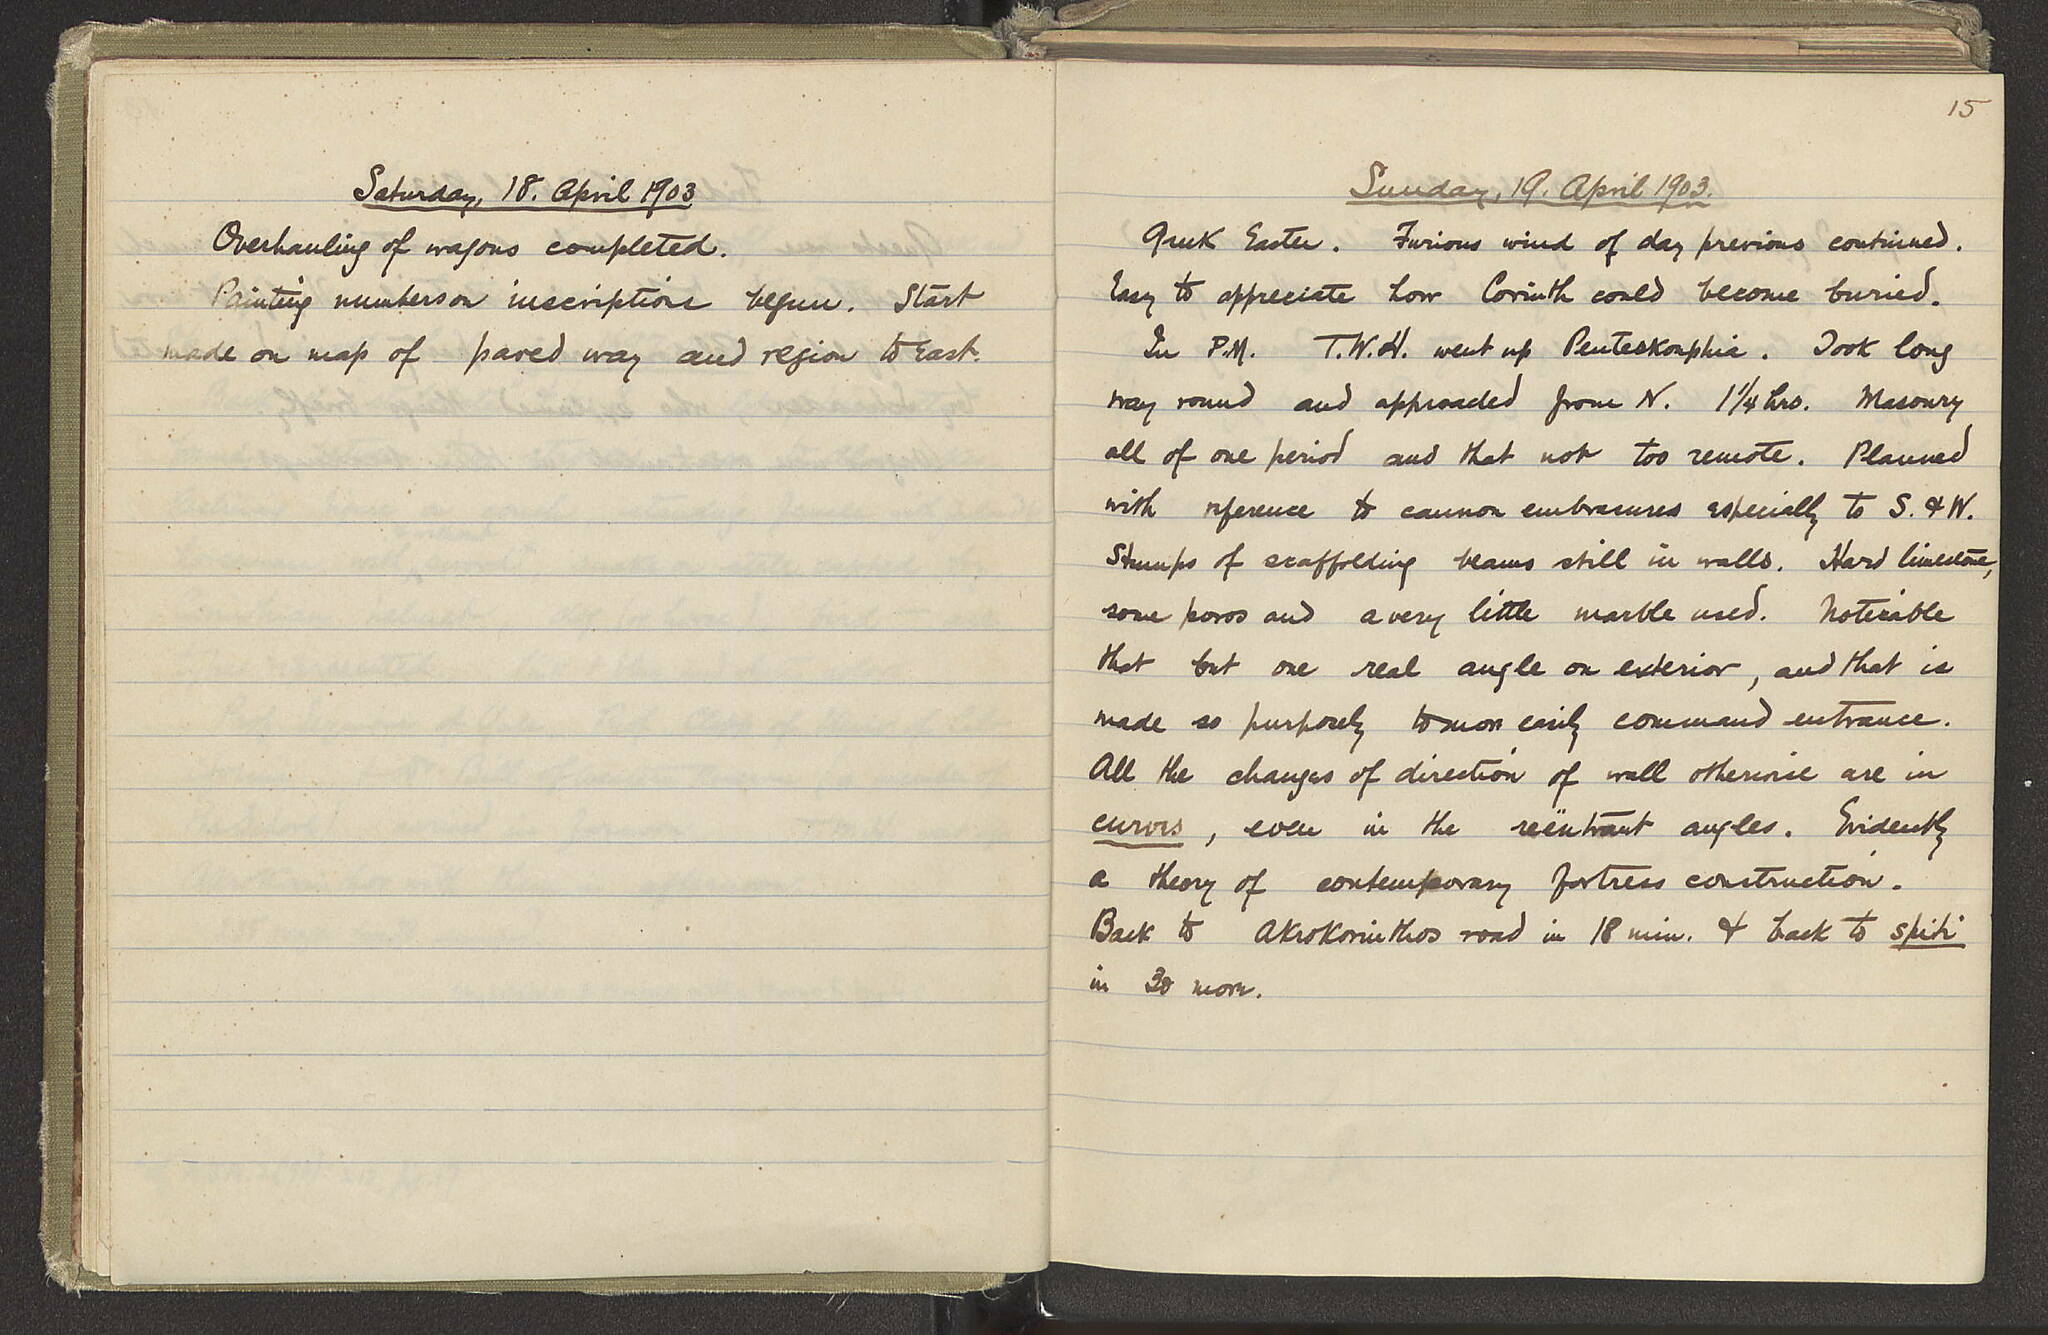 Saturday, 18. April 1903
Overhauling of wagons completed.
Painting numbers on inscriptions begun. Start
made on map of paved way and region to East.
15
Sunday, 19. April 1903.
Greek Easter. Furious wind of day previous continued.
Easy to appreciate how Corinth could become buried.
In P.M. T.W.H. went up Penteskouphia. Took long
way round and approached from N. 1 1/4 hrs. Masonry
all of one period and that not too remote. Planned
with reference to cannon embrasures especially to S. & W.
Stumps of scaffolding beams still in walls. Hard limestone,
some poros and a very little marble used. Noticeable
that but one real angle on exterior, and that is
made so purposely to more easily command entrance.
All the changes of direction of wall otherwise are in
curves, even in the reëntrant angles. Evidently
a theory of contemporary fortress construction.
Back to Akrokorinthos road in 18 min. & back to spiti
in 30 more.